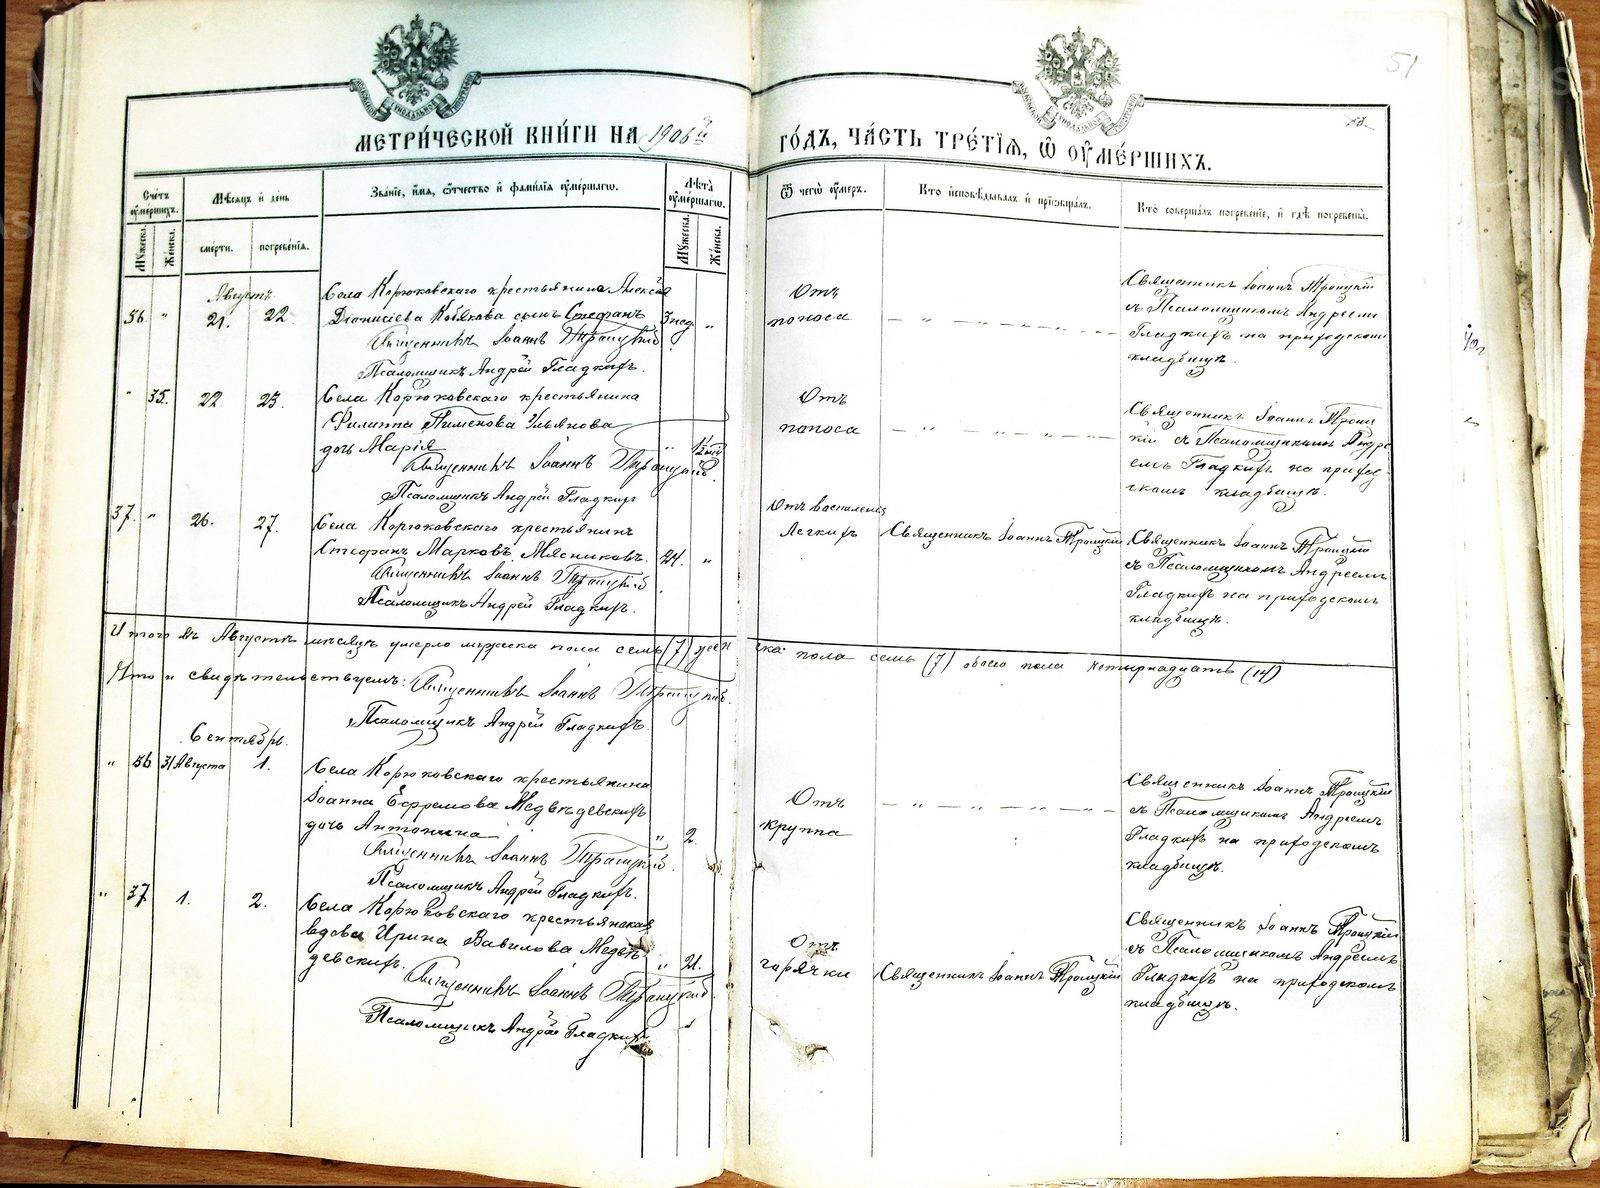 51
МЕТРИ́ЧЕСКОЙ КНИ́ГИ НА 1906й
ГО́ДЪ, ЧА́СТЬ ТРЕ́ТІѦ, Ѽ ОУМЕ́РШИХЪ.
Счетъ оумершихъ.
Мужеска.
Женска.
Мѣсяцъ и день
смерти.
погребенія.
Званіе, имя, отчество и фамилія оумершаго.
Лѣта оумершаго.
Мужеска.
Женска.
Ѿ чегѡ оумеръ.
Кто исповѣдывалъ и пріобщалъ.
Кто совершалъ погребеніе, и гдѣ погребены.
Августъ
36 " 21. 22
Села Корюковскаго крестьянина Алексѣя
Діонисіева Кобякова сынъ Стефанъ
3 нед. "
Священникъ Іоаннъ Троицкій
Псаломщикъ Андрей Гладкихъ.
Отъ
поноса
Священникъ Іоаннъ Троицкій
съ Псаломщикомъ Андреемъ
Гладкихъ на приходскомъ
кладбищѣ.
" 35. 22 23.
Села Корюковскаго крестьянина
Филиппа Пименова Ульянова
дочь Марія
Священникъ Іоаннъ Троицкій
Псаломщикъ Андрей Гладкихъ
Отъ
поноса
Священникъ Іоаннъ Троиц
кій съ Псаломщикомъ Андре
емъ Гладкихъ на приход-
скомъ кладбищѣ.
37. " 26. 27.
Села Корюковскаго крестьянинъ
Стефанъ Марковъ Мясниковъ.
24. "
Священникъ Іоаннъ Троицкій
Псаломщикъ Андрей Гладкихъ.
Отъ воспаленія
Легкихъ
Священникъ Іоаннъ Троицкій
Священникъ Іоаннъ Троицкій
съ Псаломщикомъ Андреемъ
Гладкихъ на приходскомъ
кладбищѣ.
Итого въ Августѣ мѣсяцѣ умерло мужска пола семь (7) жен
ска пола семь (7) обоего пола четырнадцать (14)
Что и свидѣтельствуемъ: Священникъ Іоаннъ Троицкій.
Псаломщикъ Андрей Гладкихъ.
Сентябрь.
" 36 31 Августа 1.
Села Корюковскаго крестьянина
Іоанна Ефремова Медвѣдевскихъ
дочь Антонина
" 2.
Священникъ Іоаннъ Троицкій.
Псаломщикъ Андрей Гладкихъ.
Отъ
круппа
Священникъ Іоаннъ Троицкій
съ Псаломщикомъ Андреемъ
Гладкихъ на приходскомъ
кладбищѣ.
" 37 1. 2.
Села Корюковскаго крестьянская
вдова Ирина Вавилова Медвѣ-
девскихъ.
" 21.
Священникъ Іоаннъ Троицкій.
Псаломщикъ Андрей Гладкихъ
Отъ
горячки
Священникъ Іоаннъ Троицкій
Священникъ Іоаннъ Троицкій
съ Псаломщикомъ Андреемъ
Гладкихъ на приходскомъ
кладбищѣ.